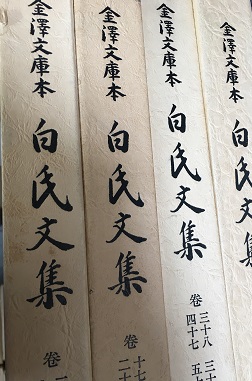 金澤文庫本
白氏文集
卷 一
金澤文庫本
白氏文集
卷 十七
二十
金澤文庫本
白氏文集
卷 三十八
四十七
金澤文庫本
白氏文集
三十
五十